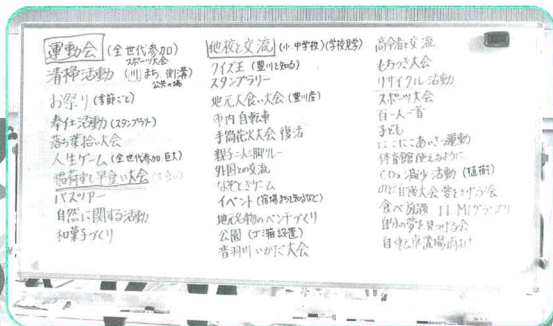 運動会 (全世代参加)
スポーツ大会
清掃活動 (川 まち 側溝)
公共の場
お祭り (季節ごと)
奉仕活動 (スタンプラリー)
落ち葉拾い大会
人生ゲーム (全世代参加、巨大)
稲荷寿し早食い大会
バスツアー
自然に関する活動
和菓子づくり
他校と交流 (小・中学校) (学校見学)
クイズ王 (豊川を知る)
スタンプラリー
地元大食い大会 (豊川産)
市内自転車
手筒花火大会 復活
親子二人三脚リレー
外国との交流
なぞときゲーム
イベント
地元名物のベンチづくり
公園 (ゴミ箱設置)
音羽川いかだ大会
高令者と交流
もちつき大会
リサイクル活動
スポーツ大会
百人一首
子ども
にこにこあいさつ運動
体育館使えるように
CO2減少活動 (植樹)
のど自慢大会
M1グランプリ
自分の夢を見つける会